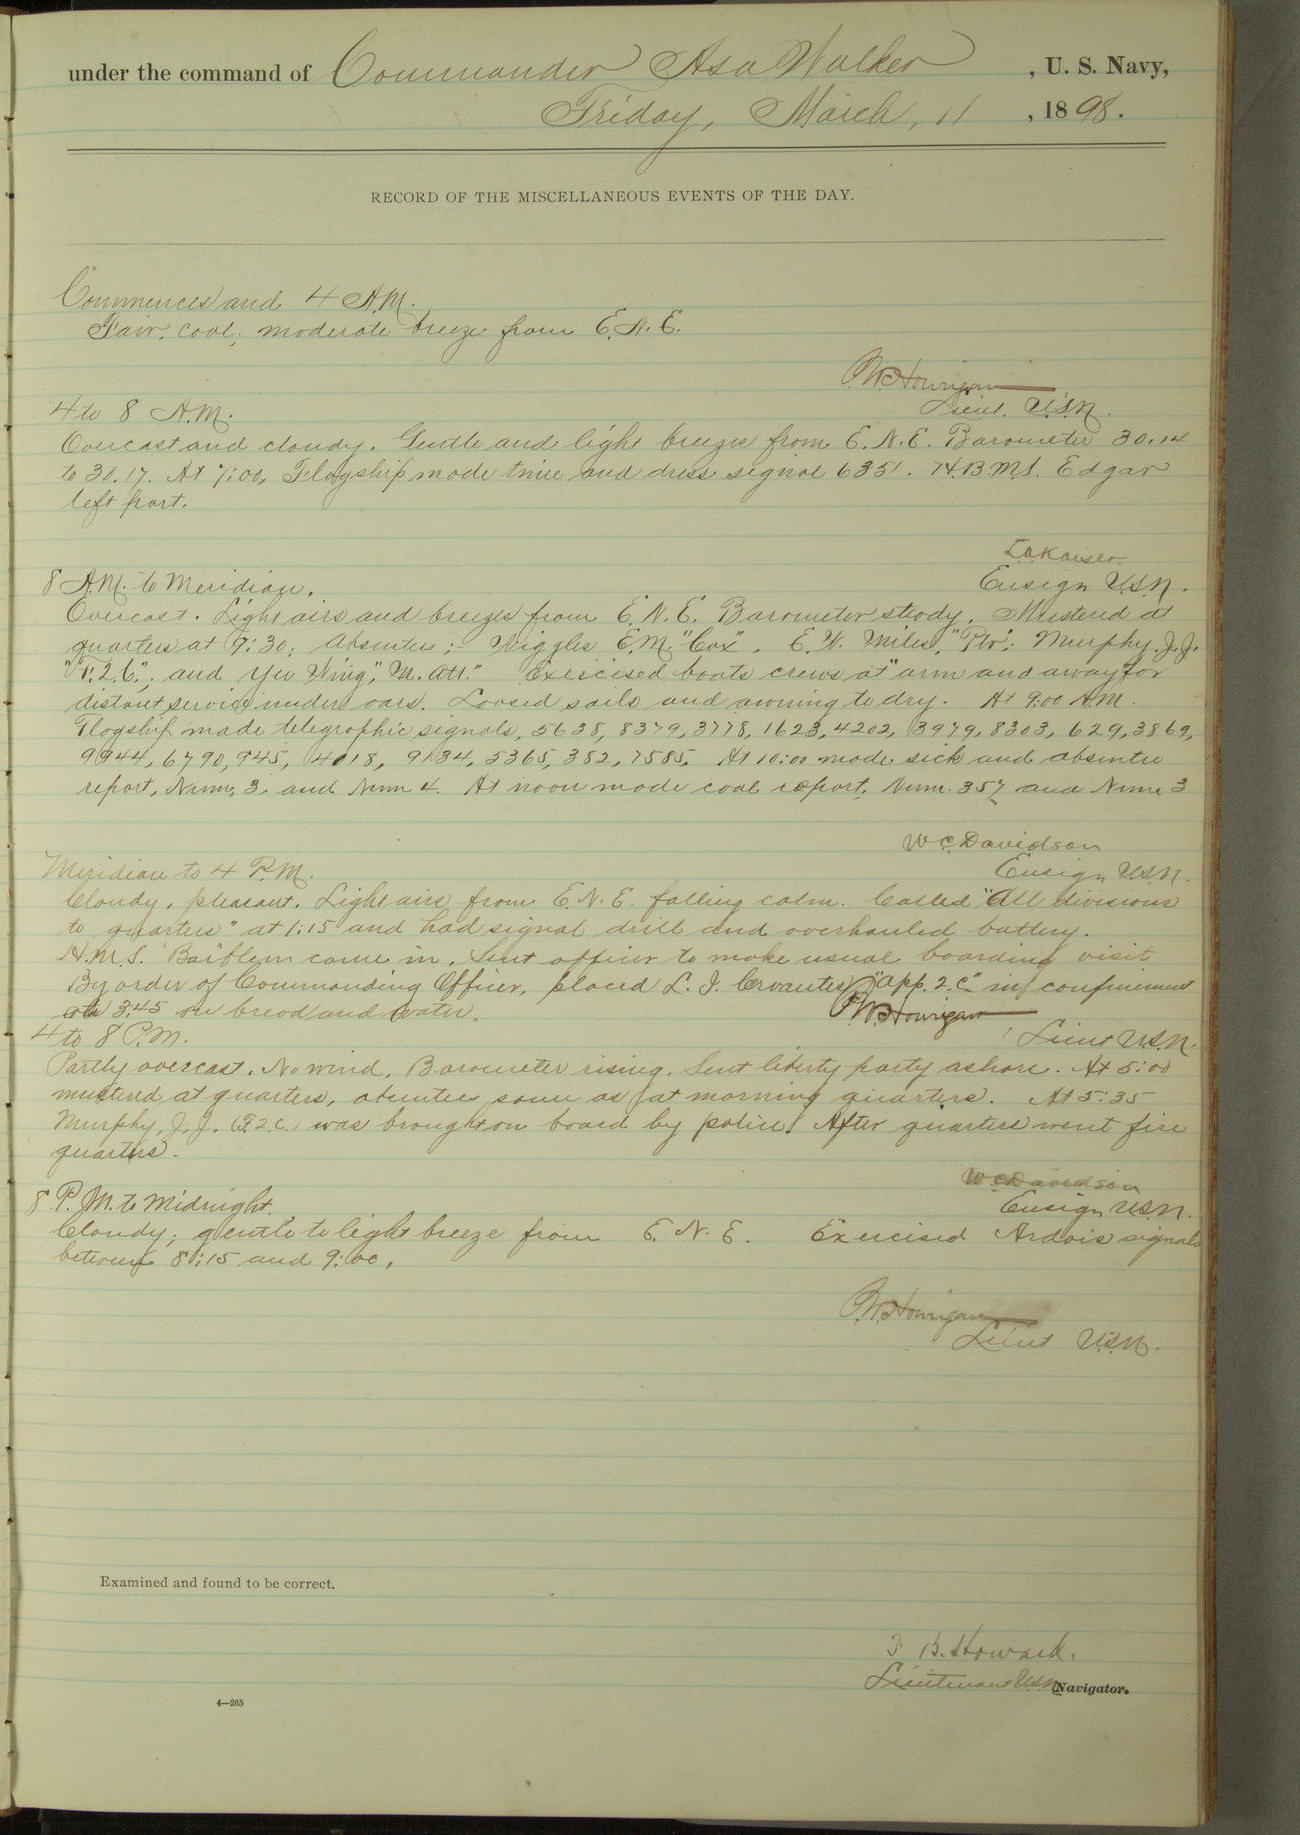 under the command of Commander Asa Walker, U. S. Navy,
Friday, March, 11, 1898.
RECORD OF THE MISCELLANEOUS EVENTS OF THE DAY.
Commences and 4 A.M.
Fair, cool, moderate breeze from E.N.E.
P.W. Hourigan
Lieut. U.S.N.
4 to 8 A.M.
Overcast and cloudy. Gentle and light breezes from E.N.E. Barometer 30.14
to 30.17. At 7:00, Flagship made time and dress signal 635. H.B.M.S. Edgar
left port.
L.A. Kaiser
Ensign U.S.N.
8 A.M. to Meridian.
Overcast. Light airs and breezes from E.N.E. Barometer steady. Mustered at
quarters at 9:30, absentees: Wiggles E.M. "Cox", E.W. Miles, "Ptr"; Murphy, J.J.
"F.2.C."; and Yee Wing, "M. Att." Exercised boats crews at "arm and away" for
distant service under oars. Loosed sails and awning to dry. At 9:00 A.M.
Flagship made telegraphic signals, 5638, 8379, 3778, 1623, 4202, 3979, 8303, 629, 3869,
9944, 6790, 945, 4018, 9134, 5365, 382, 7585. At 10:00 made sick and absentee
report, Nums, 3 and Num 4. At noon made coal report, Num. 357 and Num 3
W.C. Davidson
Ensign U.S.N.
Meridian to 4 P.M.
Cloudy, pleasant. Light airs from E.N.E. falling calm. Called "All divisions
to quarters" at 1:15 and had signal drill and overhauled battery.
H.M.S. came in. Sent officer to make usual boarding visit
By order of Commanding Officer, placed L. J. Cervantes, "App. 2.c." in confinement
at 3:45 on bread and water.
P.W. Hourigan
Lieut U.S.N.
4 to 8 P.M.
Partly overcast. No wind. Barometer rising. Sent liberty party ashore. At 5:00
mustered at quarters, absentees same as at morning quarters. At 5:35
Murphy, J.J. (F.2.C.) was brought on board by police. After quarters went fire
quarters.
W.C. Davidson
Ensign U.S.N.
8 P.M. to Midnight.
Cloudy; gentle to light breeze from E.N.E. Exercised Ardois signals
between 8:15 and 9:00.
P.W. Hourigan
Lieut U.S.N.
Examined and found to be correct.
T. B. Howard.
Lieutenant U.S.N. Navigator.
4—265